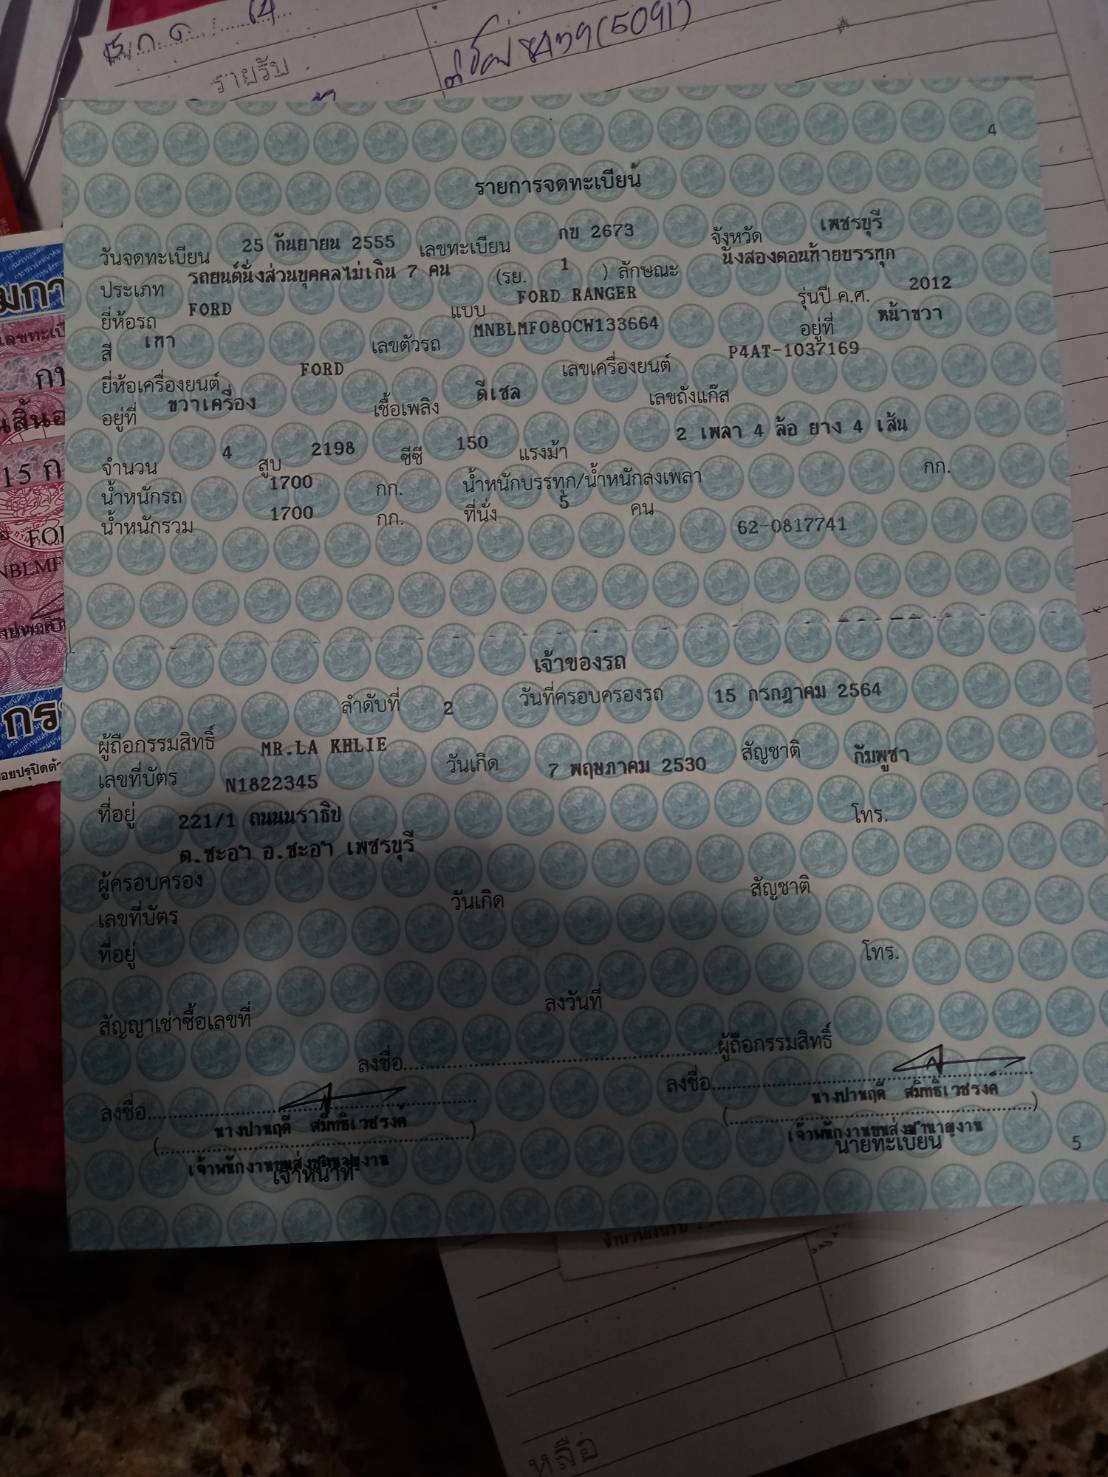 รายรับ
4
รายการจดทะเบียน
วันจดทะเบียน 25 กันยายน 2555 เลขทะเบียน กข 2673 จังหวัด เพชรบุรี
ประเภท รถยนต์นั่งส่วนบุคคลไม่เกิน 7 คน (รย. 1 ) ลักษณะ นั่งสองตอนท้ายบรรทุก
ยี่ห้อรถ FORD แบบ FORD RANGER รุ่นปี ค.ศ. 2012
สี เทา เลขตัวรถ MNBLMF080CW133664 อยู่ที่ หน้าขวา
ยี่ห้อเครื่องยนต์ FORD เลขเครื่องยนต์ P4AT-1037169
อยู่ที่ ขวาเครื่อง เชื้อเพลิง ดีเซล เลขถังแก๊ส
จำนวน 4 สูบ 2198 ซีซี 150 แรงม้า 2 เพลา 4 ล้อ ยาง 4 เส้น
น้ำหนักรถ 1700 กก. น้ำหนักบรรทุก/น้ำหนักลงเพลา กก.
น้ำหนักรวม 1700 กก. ที่นั่ง 5 คน
62-0817741
เจ้าของรถ
ลำดับที่ 2 วันที่ครอบครองรถ 15 กรกฎาคม 2564
ผู้ถือกรรมสิทธิ์ MR.LA KHLIE
เลขที่บัตร N1822345 วันเกิด 7 พฤษภาคม 2530 สัญชาติ กัมพูชา
ที่อยู่ 221/1 ถนนนราธิป โทร.
ต.ชะอำ อ.ชะอำ เพชรบุรี
ผู้ครอบครอง
เลขที่บัตร วันเกิด สัญชาติ
ที่อยู่ โทร.
สัญญาเช่าซื้อเลขที่ ลงวันที่
ลงชื่อ ผู้ถือกรรมสิทธิ์
ลงชื่อ ลงชื่อ
นางปานฤดี สมิทธิเวชรงค์ นางปานฤดี สมิทธิเวชรงค์
เจ้าพนักงานขนส่งชำนาญงาน เจ้าพนักงานขนส่งชำนาญงาน
เจ้าหน้าที่ นายทะเบียน
5